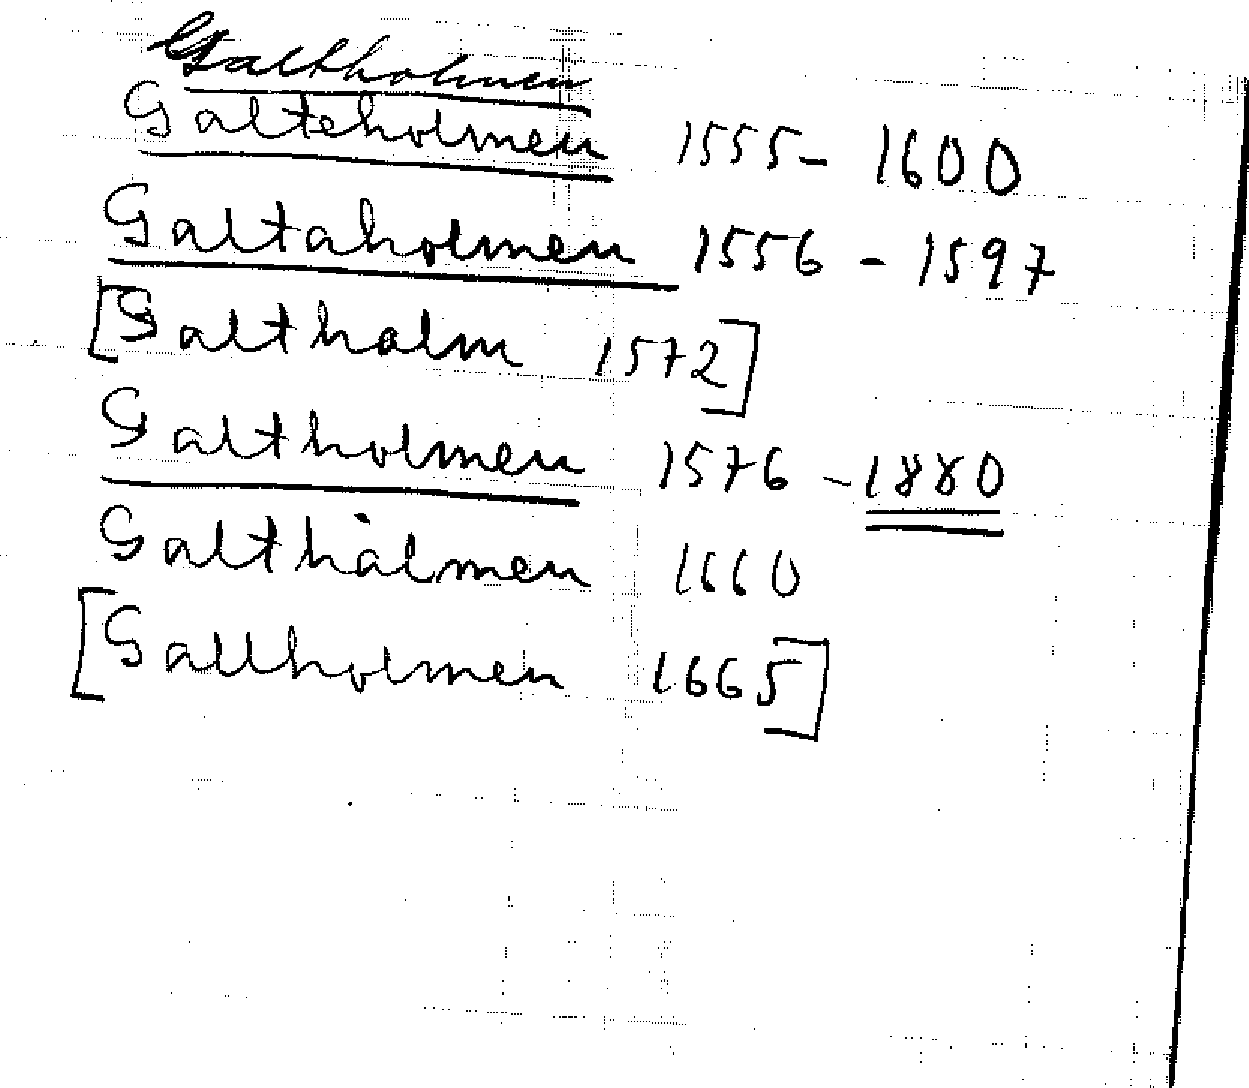 Galtholmen
Galteholmen 1555-1600
Galtaholmen 1556-1597
[Galtholm 1572]
Galtholmen 1576-1880
Galthålmen 1660
[Gallholmen 1665]